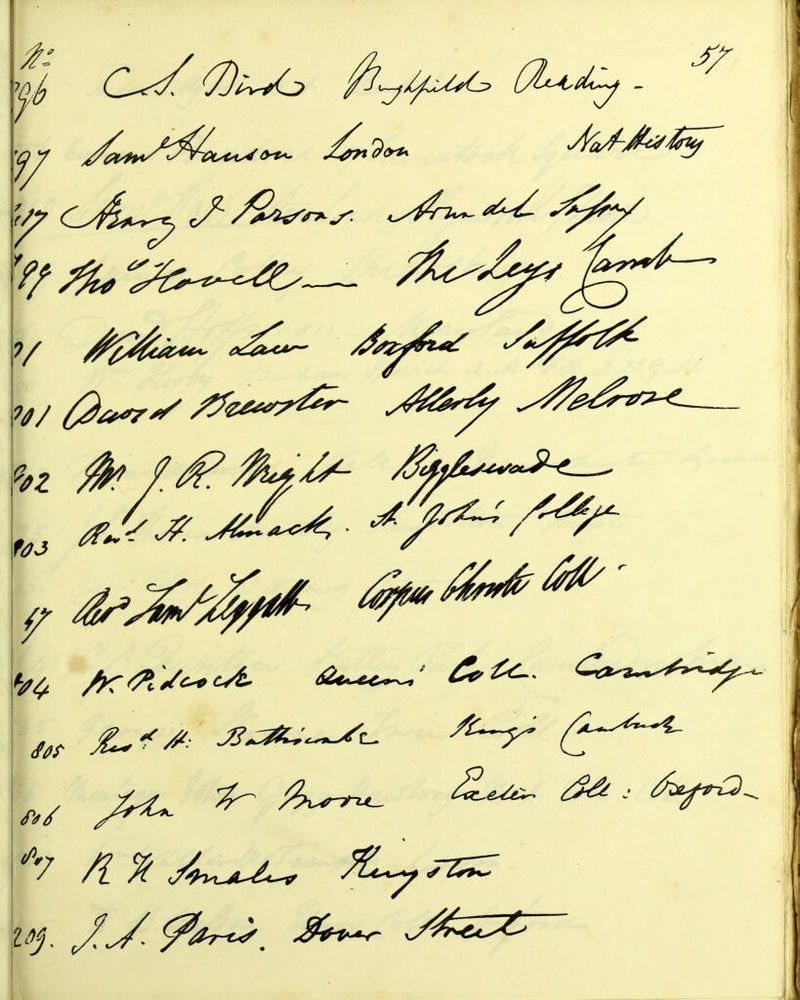 No 57
796 C.S. Bird Burghfield Reading -
797 Saml Hanson London Nat History
Henry I Parsons. Arundel Sussex
799 Thos Hovell The Leys Camb
William Law Boxford Suffolk
801 David Brewster Allerly Melrose
802 Mr J. R. Wright Biggleswade
803 Revd H. Almack. St John's College
57 Revd Saml Leggatt Corpus Christi Coll.
804 W. Pidcock Queens' Coll. Cambridge
805 Revd H: Bathiscombe King's Cambridge
806 John W Moore Exeter Coll: Oxford -
807 R H Smales Kingston
209. J. A. Paris. Dover Street